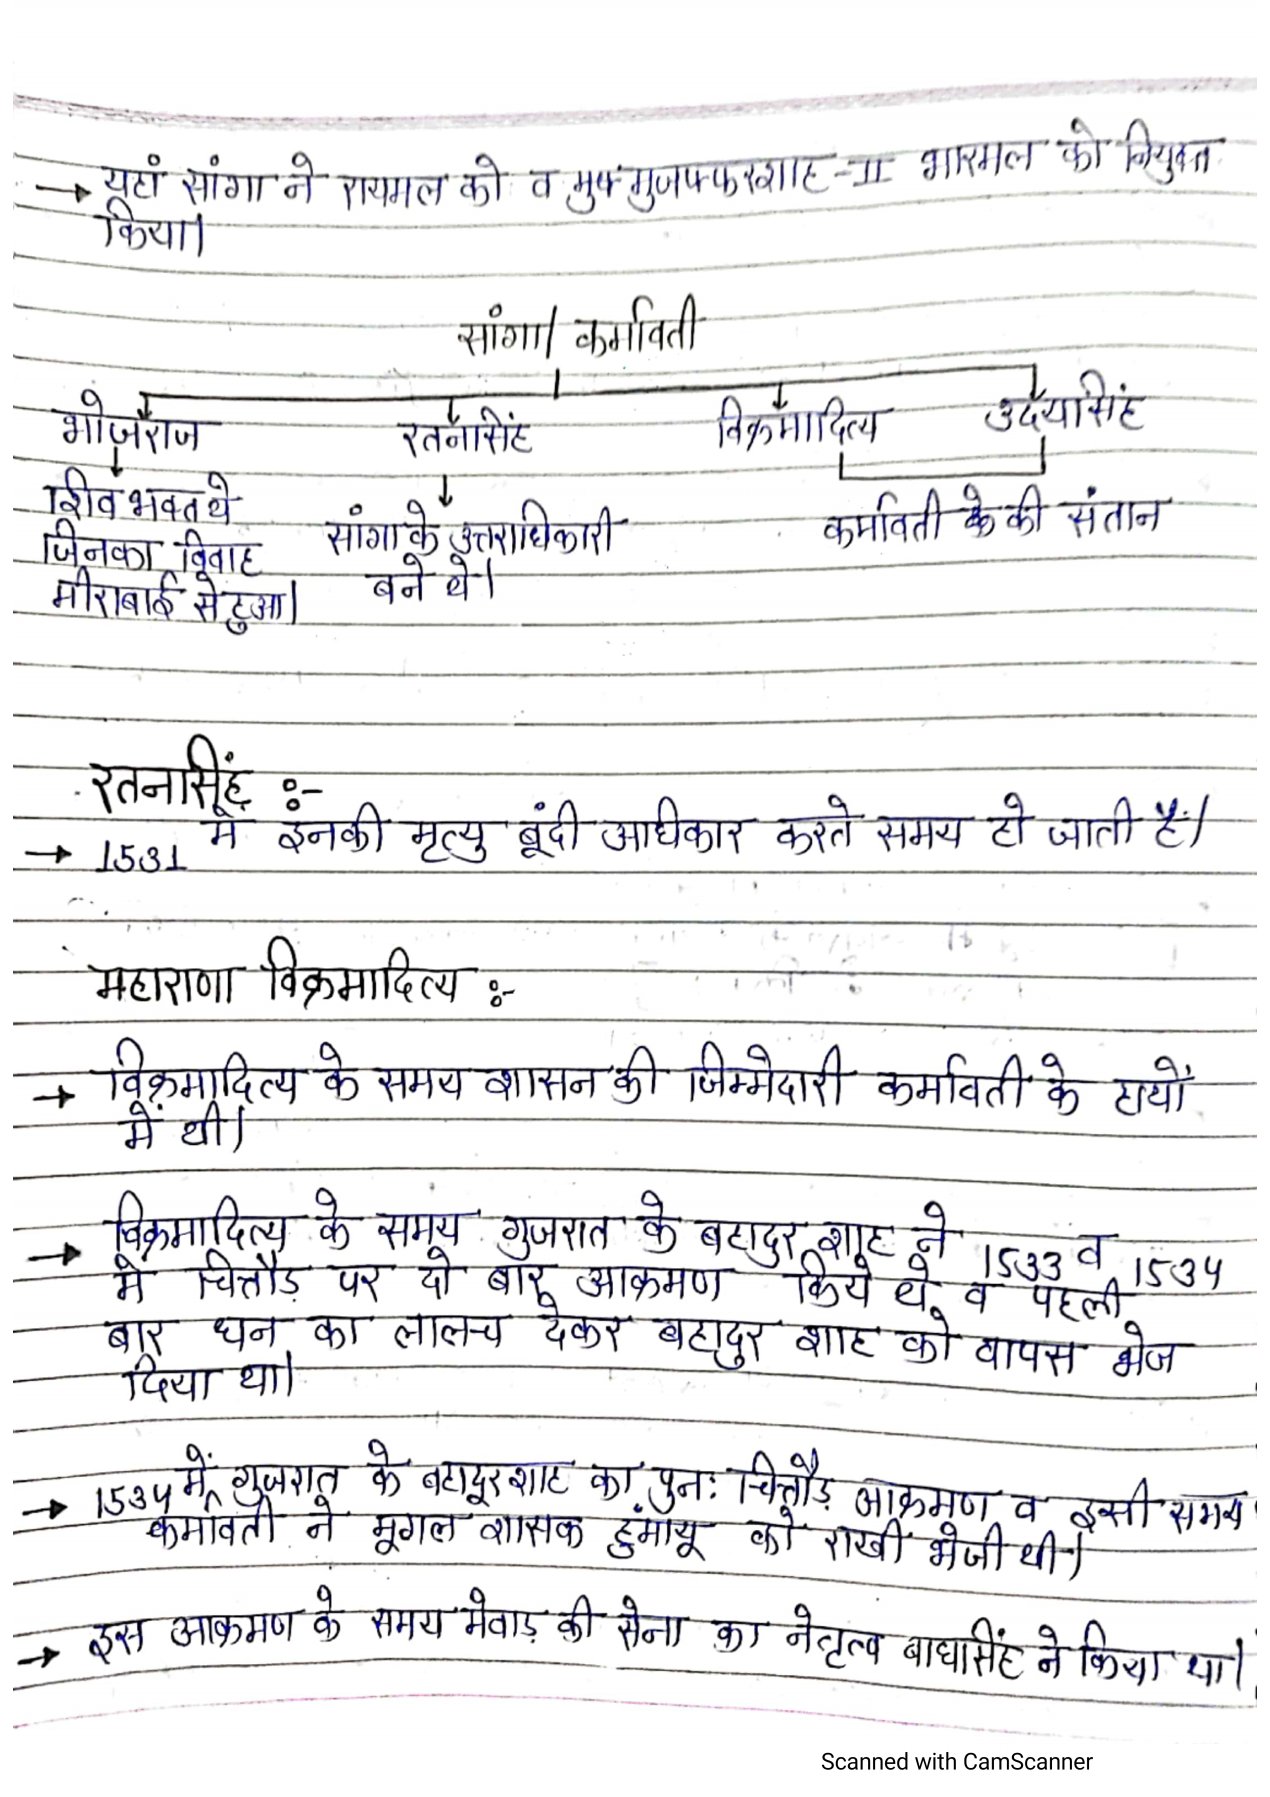 → यहां सांगा ने रायमल को व मुफ मुजफ्फरशाह-II भारमल को नियुक्त
किया।
सांगा/ कर्मावती
भोजराज रतनसिंह विक्रमादित्य उदयसिंह
शिव भक्त थे
जिनका विवाह
मीराबाई से हुआ।
सांगा के उत्तराधिकारी
बने थे।
कर्मावती के की संतान
रतनासिंह :-
→ 1531 में इनकी मृत्यु बूंदी अधिकार करते समय हो जाती है।
महाराणा विक्रमादित्य :-
→ विक्रमादित्य के समय शासन की जिम्मेदारी कर्मावती के हाथों
में थी।
→ विक्रमादित्य के समय गुजरात के बहादुर शाह ने 1533 व 1534
में चित्तौड़ पर दो बार आक्रमण किये थे, व पहली
बार धन का लालच देकर बहादुर शाह को वापस भेज
दिया था।
→ 1534 में गुजरात के बहादूरशाह का पुनः चित्तौड़ आक्रमण व इसी समय
कर्मावती ने मूगल शासक हुंमायू को राखी भेजी थी।
→ इस आक्रमण के समय मेवाड़ की सेना का नेतृत्व बाघसिंह ने किया था।
Scanned with CamScanner